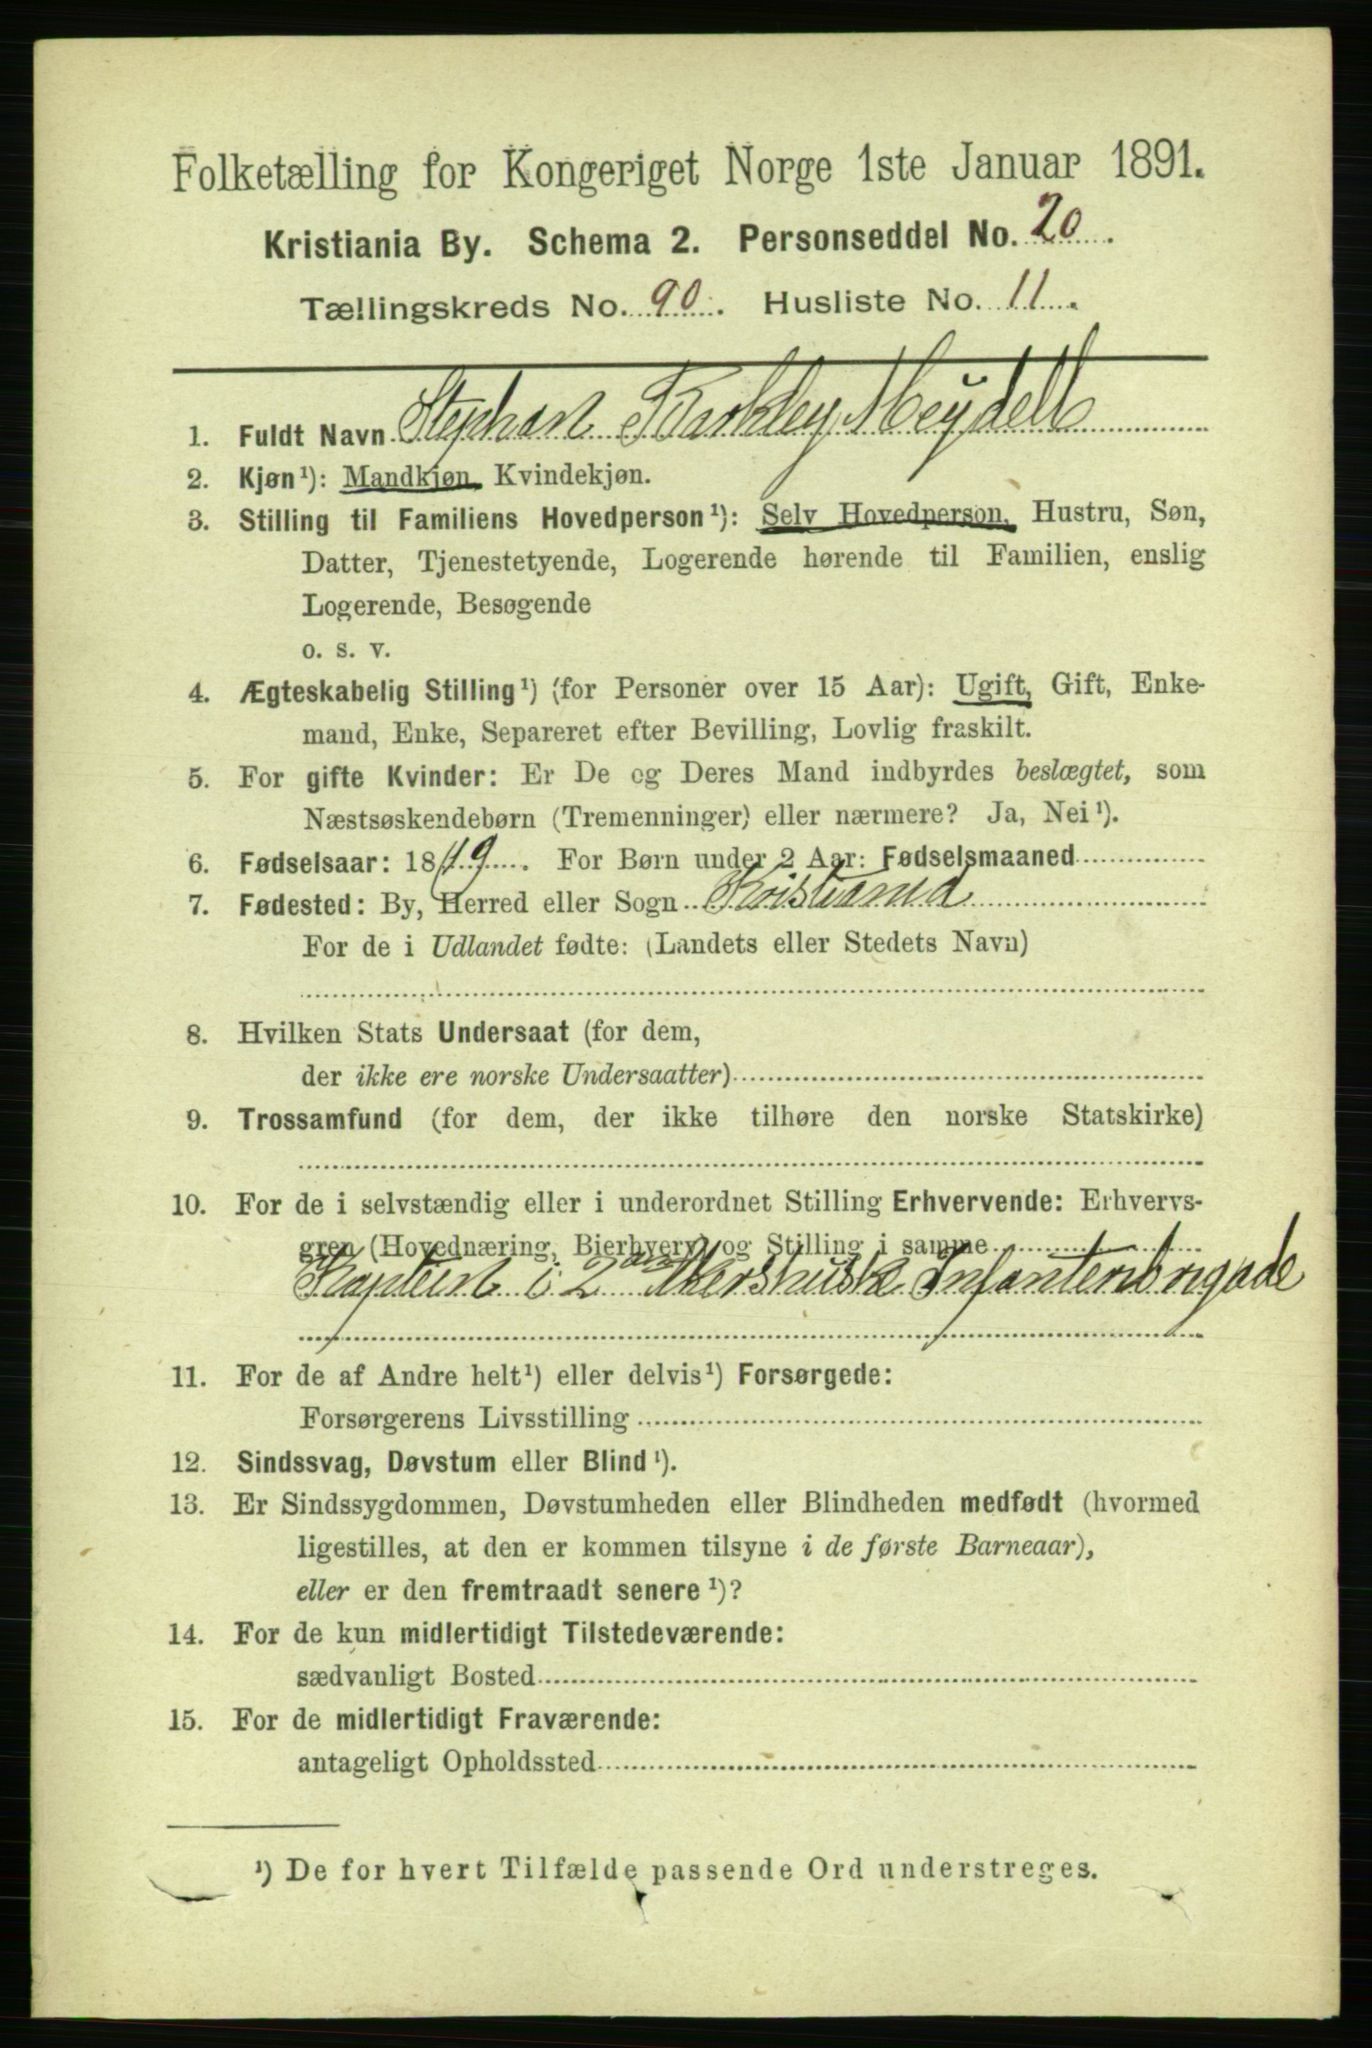 Folketælling for Kongeriget Norge 1ste Januar 1891.
Kristiania By. Schema 2. Personseddel No. 20.
Tællingskreds No. 90. Husliste No. 11.
1. Fuldt Navn Stephan Meydell
2. Kjøn¹): Mandkjøn, Kvindekjøn.
3. Stilling til Familiens Hovedperson¹): Selv Hovedperson, Hustru, Søn,
Datter, Tjenestetyende, Logerende hørende til Familien, enslig
Logerende, Besøgende
o. s. v.
4. Ægteskabelig Stilling¹) (for Personer over 15 Aar): Ugift, Gift, Enke-
mand, Enke, Separeret efter Bevilling, Lovlig fraskilt.
5. For gifte Kvinder: Er De og Deres Mand indbyrdes beslægtet, som
Næstsøskendebørn (Tremenninger) eller nærmere? Ja, Nei¹).
6. Fødselsaar: 1849. For Børn under 2 Aar: Fødselsmaaned
7. Fødested: By, Herred eller Sogn Kristiania
For de i Udlandet fødte: (Landets eller Stedets Navn)
8. Hvilken Stats Undersaat (for dem,
der ikke ere norske Undersaatter)
9. Trossamfund (for dem, der ikke tilhøre den norske Statskirke)
10. For de i selvstændig eller i underordnet Stilling Erhvervende: Erhvervs-
gren (Hovednæring, Bierhverv) og Stilling i samme
Kaptein i 2den Akershusk Infanteribrigade
11. For de af Andre helt¹) eller delvis¹) Forsørgede:
Forsørgerens Livsstilling
12. Sindssvag, Døvstum eller Blind¹).
13. Er Sindssygdommen, Døvstumheden eller Blindheden medfødt (hvormed
ligestilles, at den er kommen tilsyne i de første Barneaar),
eller er den fremtraadt senere¹)?
14. For de kun midlertidigt Tilstedeværende:
sædvanligt Bosted
15. For de midlertidigt Fraværende:
antageligt Opholdssted
¹) De for hvert Tilfælde passende Ord understreges.